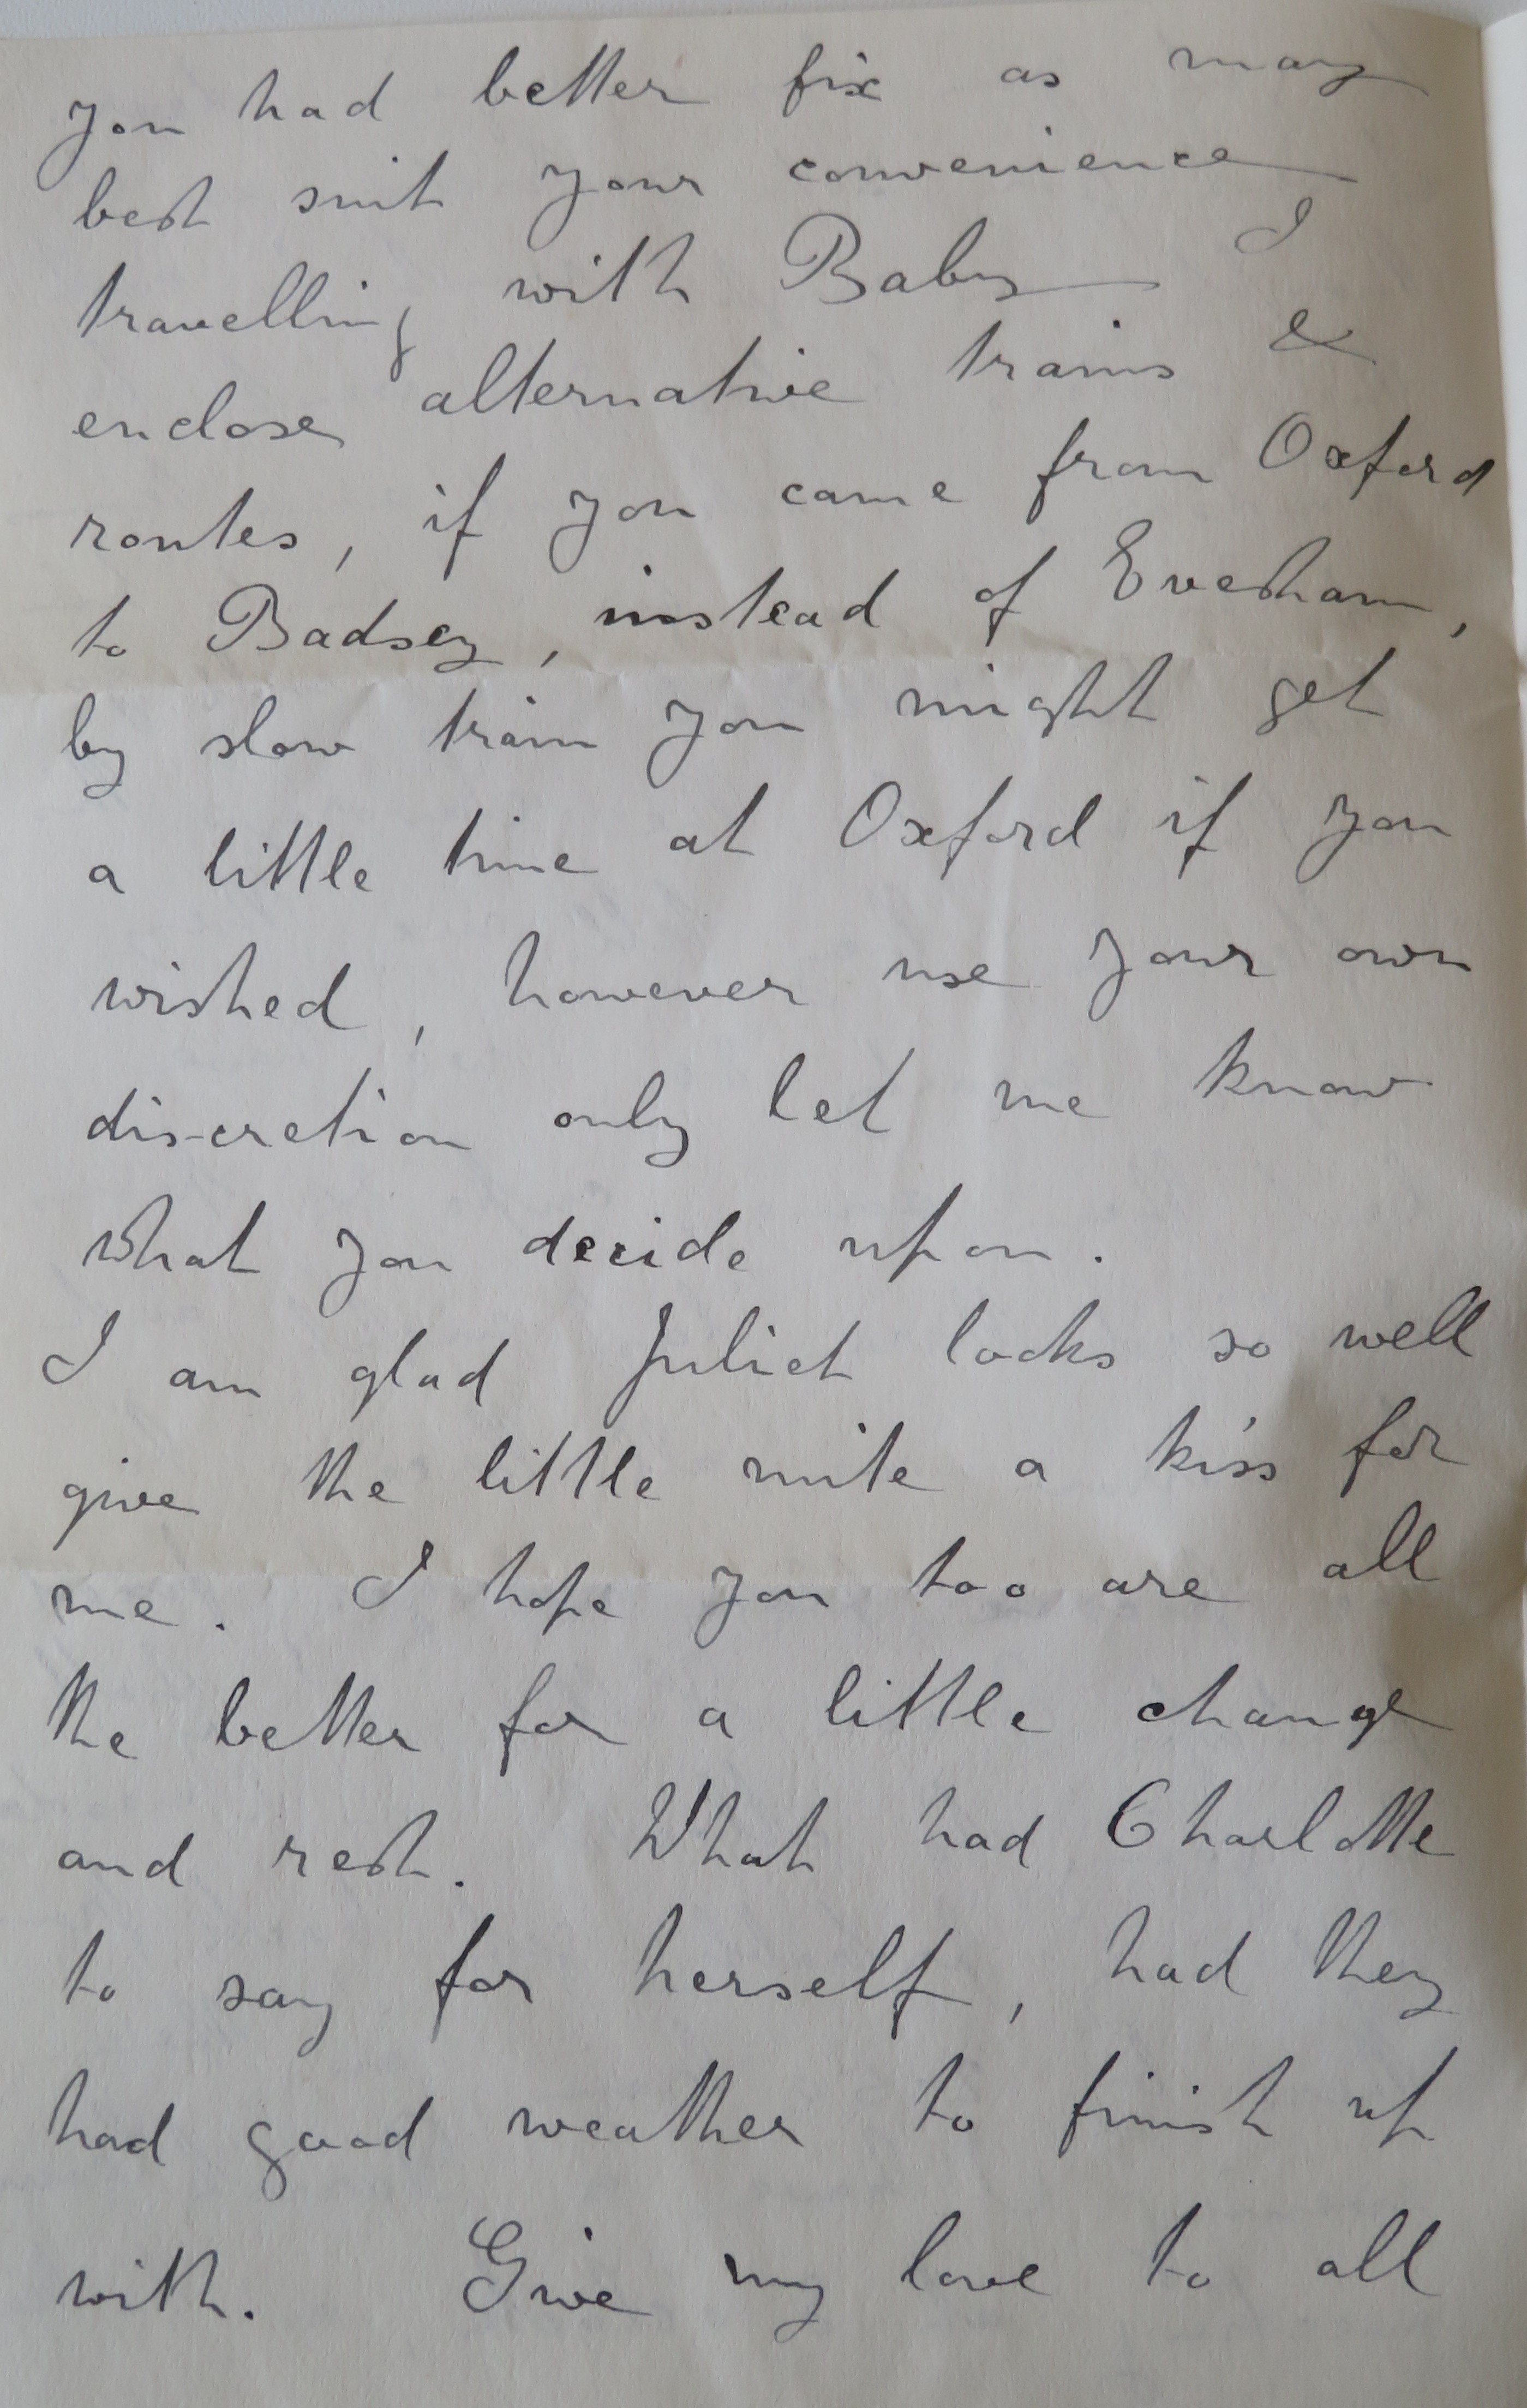 you had better fix as may
best suit your convenience
travelling with Baby I
enclose alternative trains &
routes, if you came from Oxford
to Badsey, instead of Evesham,
by slow train you might get
a little time at Oxford if you
wished, however use your own
discretion only let me know
what you decide upon.
I am glad Juliet looks so well
give the little mite a kiss for
me. I hope you too are all
the better for a little change
and rest. What had Charlotte
to say for herself, had they
had good weather to finish up
with. Give my love to all